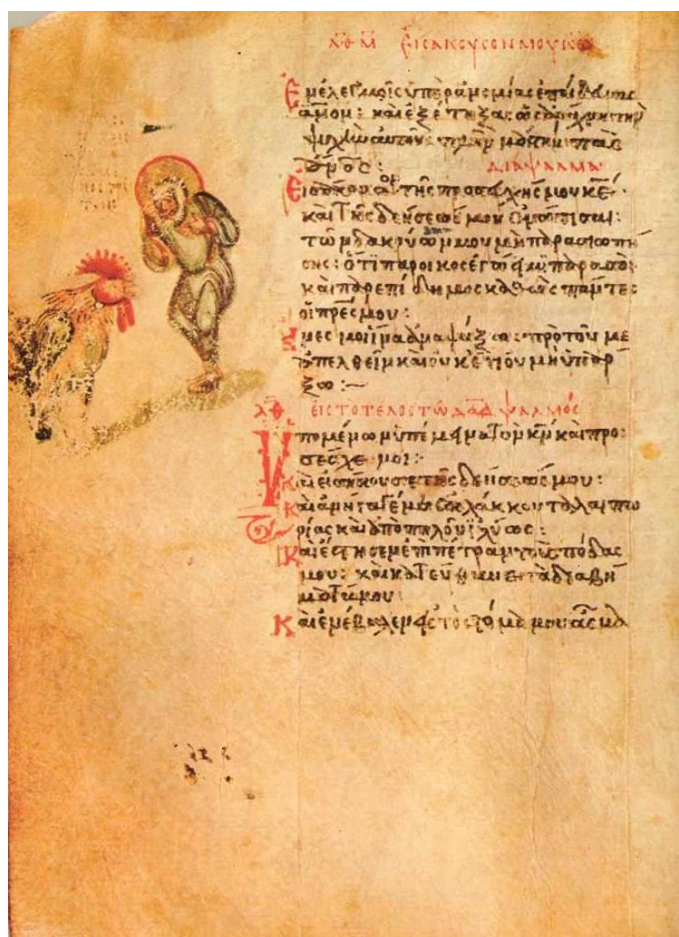 Εἰσάκουσον μου κε
Ἐν ἐλεγμοῖς ὑπὲρ ἀνομίας ἐπαίδευσας
ἄνον: καὶ ἐξέτηξας ὡς ἀράχνην τὴν
ψυχὴν αὐτοῦ· πλὴν μάτην πᾶς
ἄνος: ΔΙΑΨΑΛΜΑ
Εἰσάκουσον τῆς προσευχῆς μου κε·
καὶ τῆς δεήσεώς μου ἐνώτισαι:
τῶν δακρύων μου μὴ παρασιωπή
σης: ὅτι πάροικος ἐγώ εἰμι παρὰ σοὶ
καὶ παρεπίδημος καθὼς πάντες
οἱ πρες μου:
Ἄνες μοι ἵνα ἀναψύξω· πρὸ τοῦ με
ἀπελθεῖν καὶ οὐκέτι οὐ μὴ ὑπάρ
ξω:~
λθ ΕΙΣ ΤΟ ΤΕΛΟΣ ΤΩ ΔΑΔ ΨΑΛΜΟΣ
Ὑπομένων ὑπέμεινα τὸν κν καὶ προ
σέσχε μοι:
Καὶ εἰσήκουσε τῆς δεήσεώς μου:
Καὶ ἀνήγαγέ με ἐκ λάκκου ταλαιπω
ρίας καὶ ἀπὸ πηλοῦ ἰλύος:
Καὶ ἔστησεν ἐπὶ πέτραν τοὺς πόδας
μου: καὶ κατεύθυνε τὰ διαβή
ματά μου:
Καὶ ἐνέβαλεν εἰς τὸ στόμα μου ᾆσμα